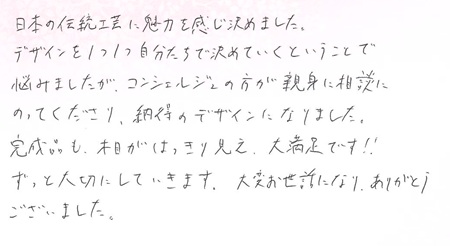 日本の伝統工芸に魅力を感じ決めました。
デザインを1つ1つ自分たちで決めていくということで
悩みましたが、コンシェルジュの方が親身に相談に
のってくださり、納得のデザインになりました。
完成品も、木目がはっきり見え、大満足です!!
ずっと大切にしていきます。大変お世話になり、ありがとう
ございました。